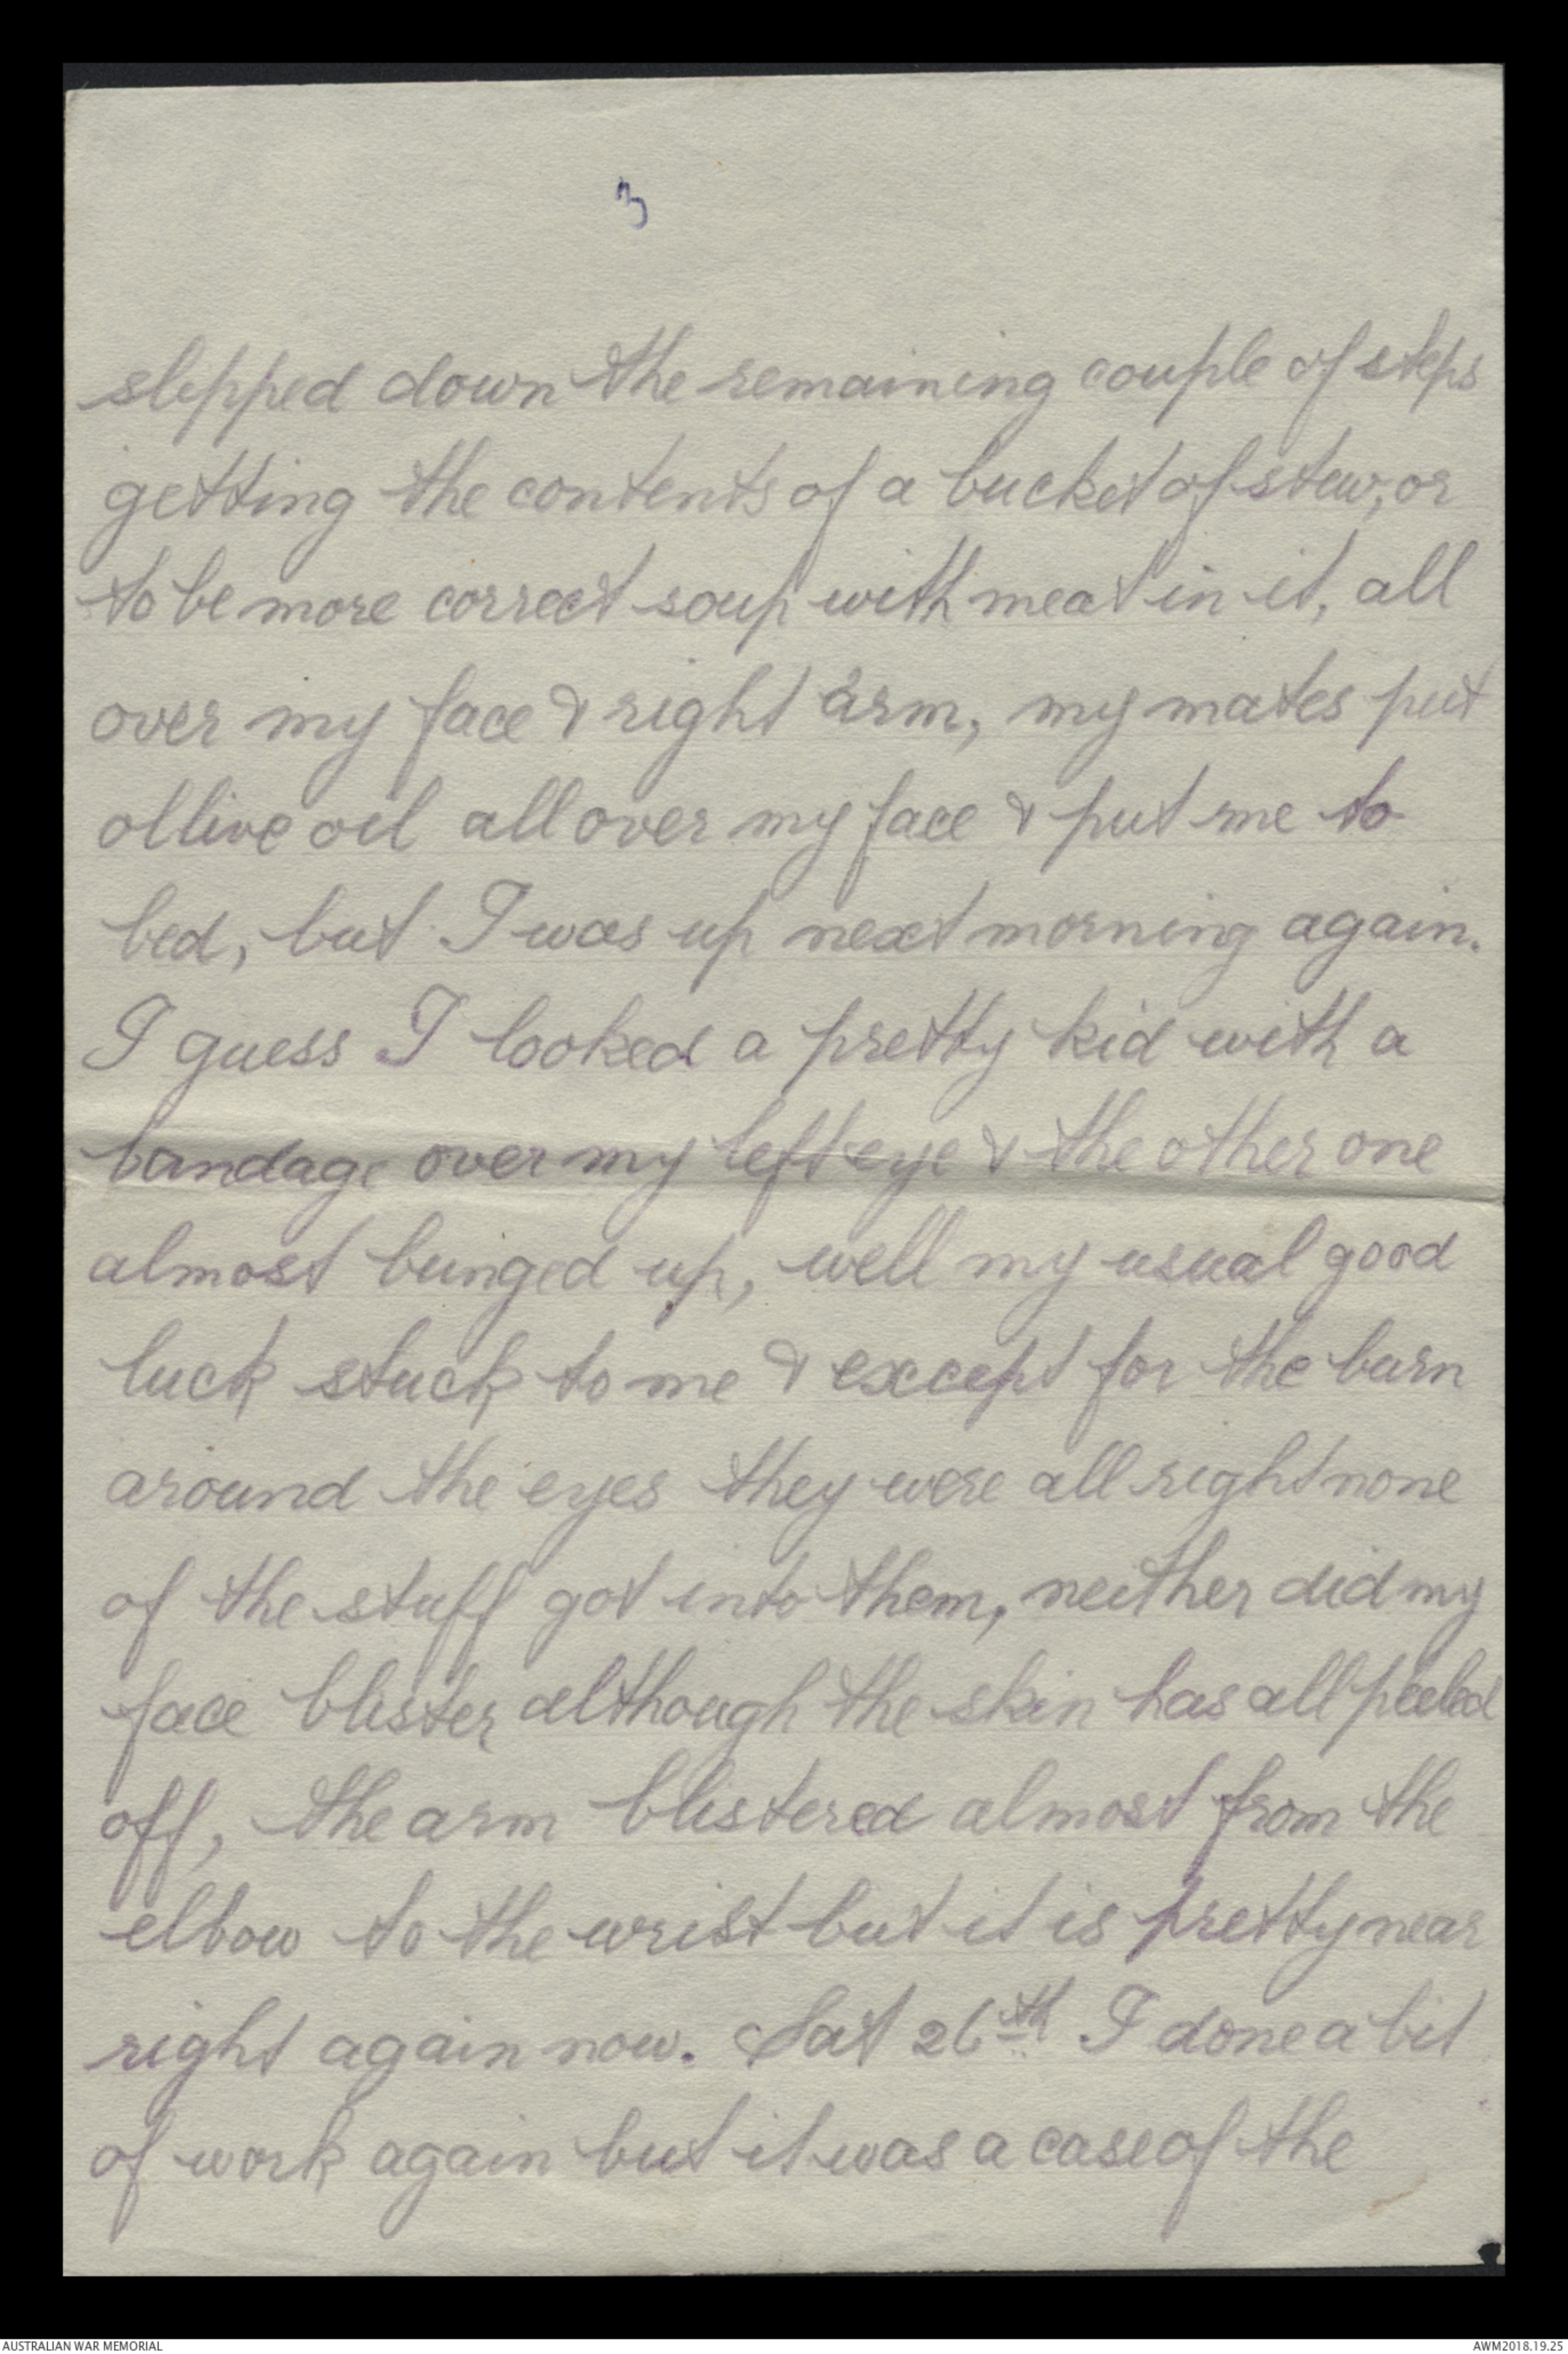 3
slipped down the remaining couple of steps
getting the contents of a bucket of stew, or
to be more correct soup with meat in it, all
over my face & right arm, my mates put
ollive oil all over my face & put me to
bed, but I was up next morning again.
I guess I looked a pretty kid with a
bandage over my left eye & the other one
almost bunged up, well my usual good
luck stuck to me & except for the burn
around the eyes they were all right none
of the stuff got into them, neither did my
face blister although the skin has all peeled
off, the arm blistered almost from the
elbow to the wrist but it is pretty near
right again now. Sat 26th I done a bit
of work again but it was a case of the
AUSTRALIAN WAR MEMORIAL
AWM2018.19.25